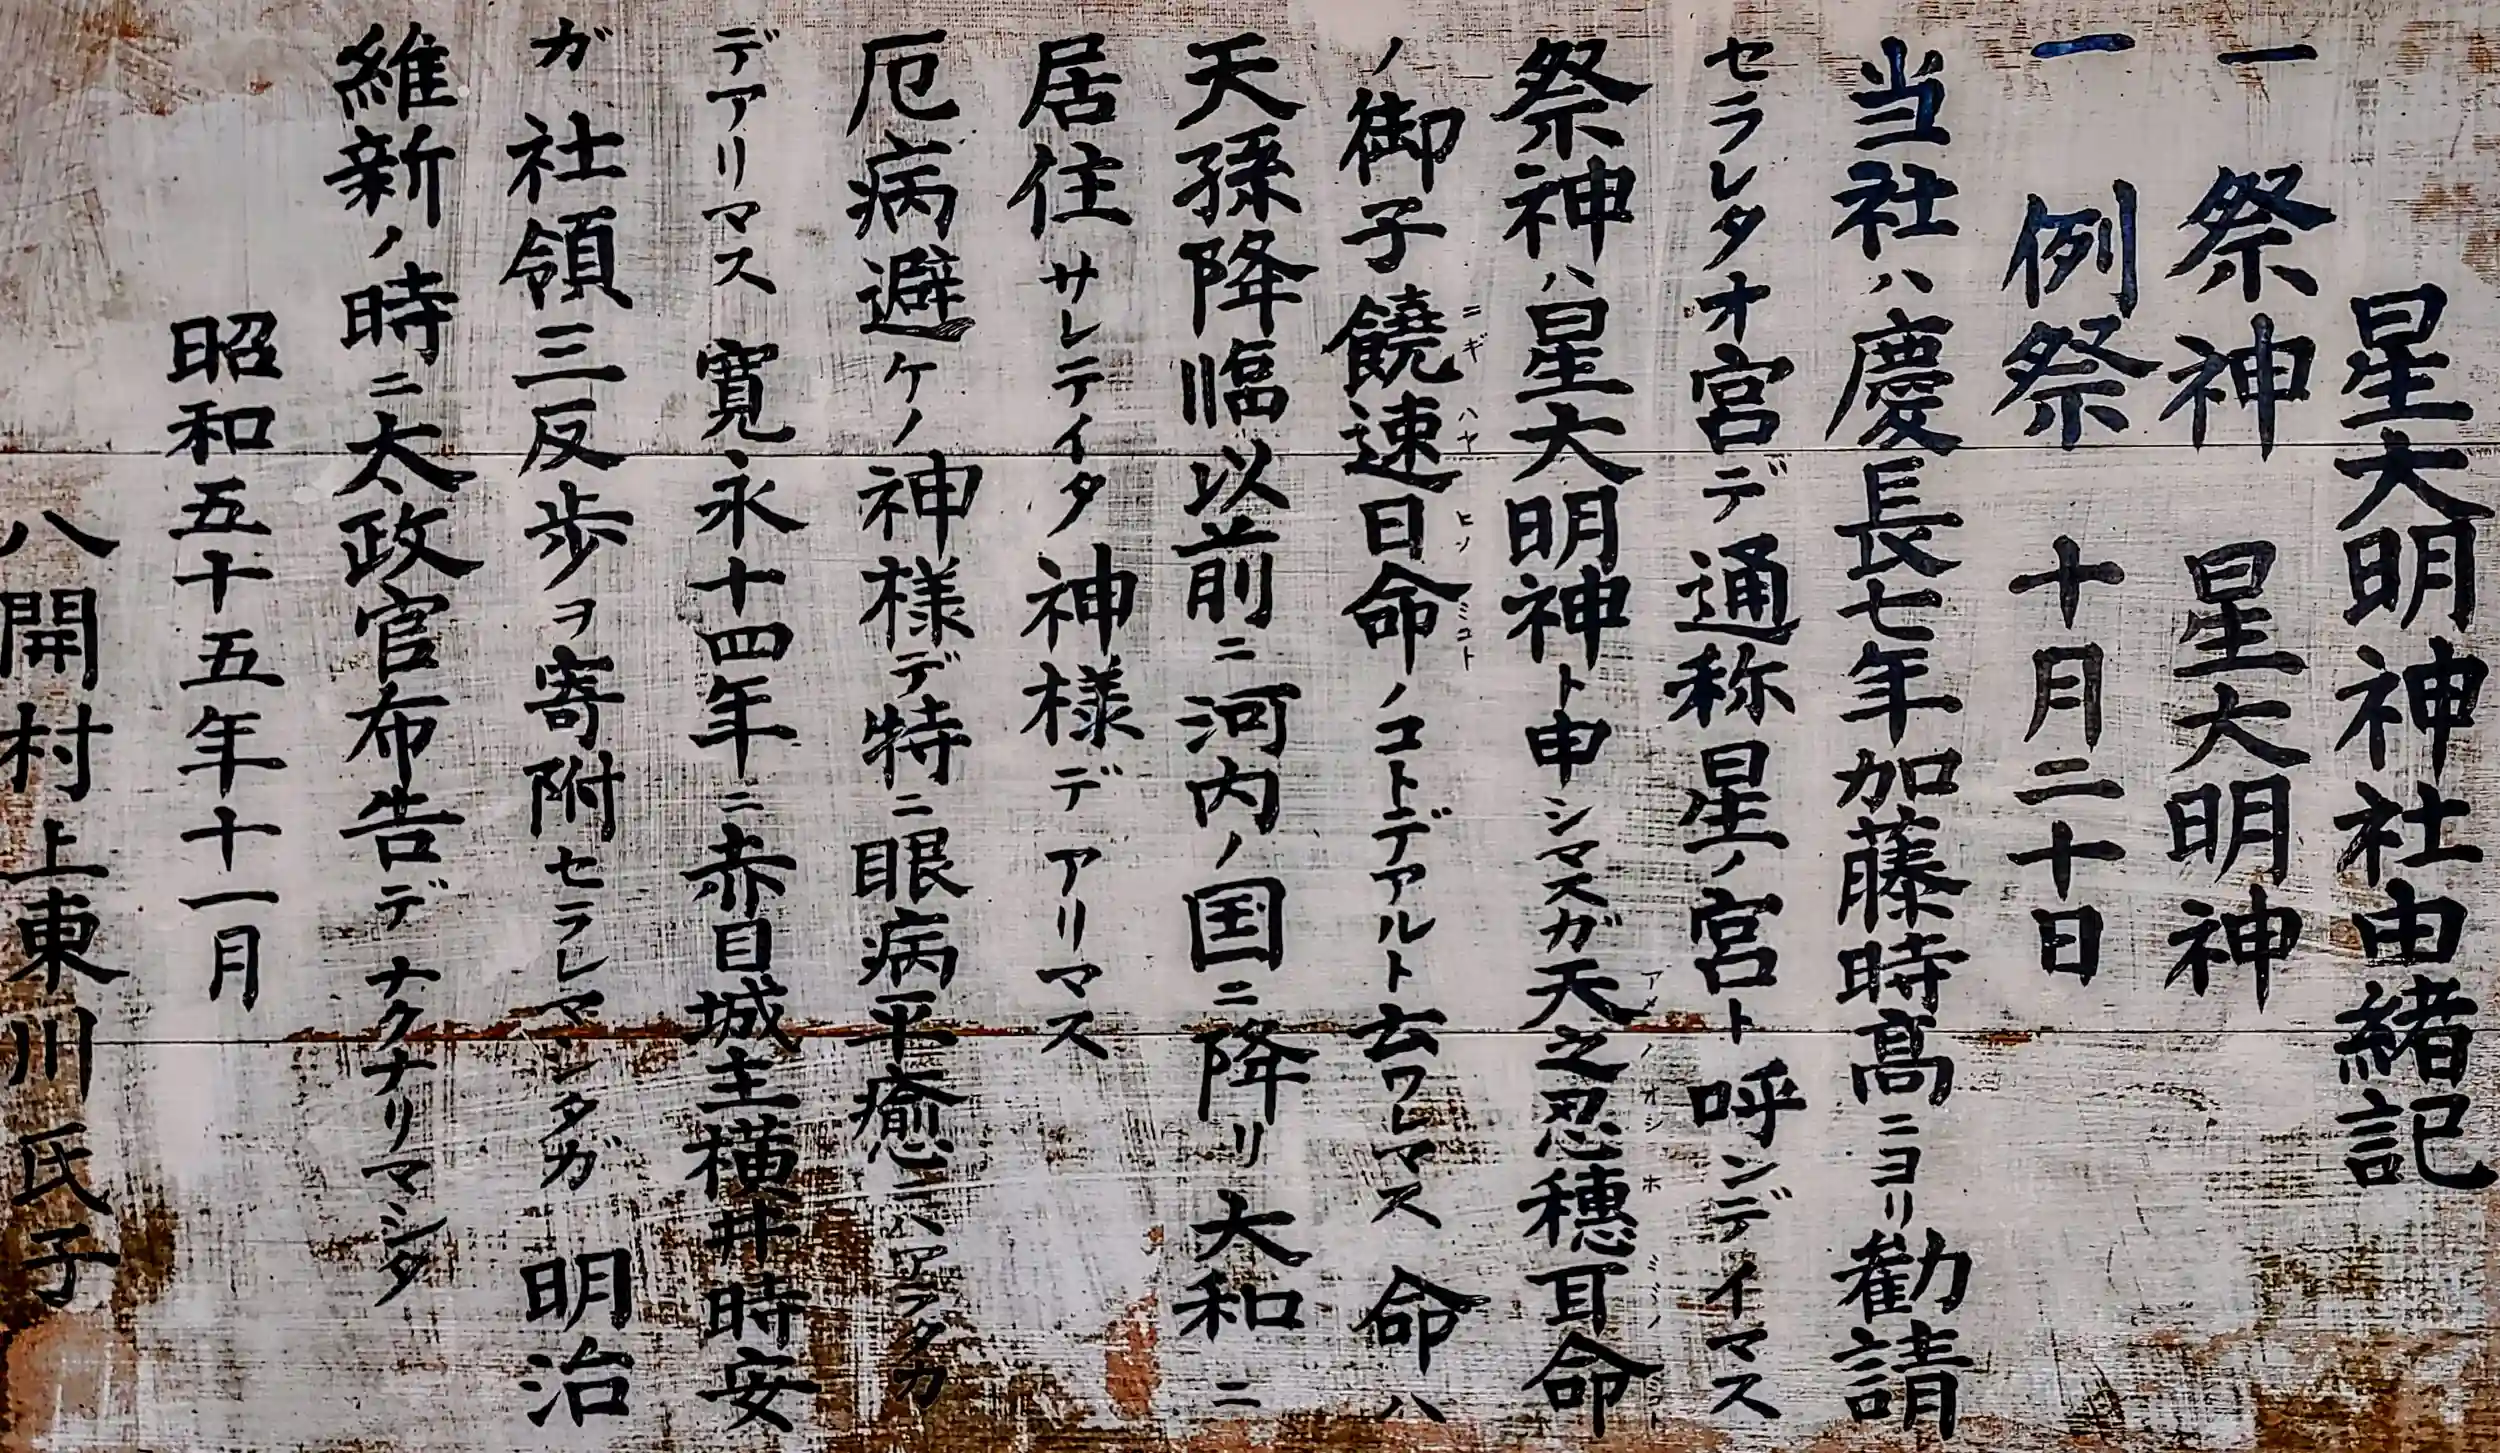 星大明神社由緒記
一 祭神 星大明神
一 例祭 十月二十日
当社ハ慶長七年加藤時高ニヨリ勧請
セラレタオ宮デ通称星ノ宮ト呼ンデイマス
祭神ハ星大明神ト申シマスガ天之忍穂耳命
ノ御子饒速日命ノコトデアルト云ワレマス 命ハ
天孫降臨以前ニ河内ノ国ニ降リ大和ニ
居住サレテイタ神様デアリマス
厄病避ケノ神様デ特ニ眼病平癒ニハアラタカ
デアリマス 寛永十四年ニ赤目城主横井時安
ガ社領三反歩ヲ寄附セラレマシタガ 明治
維新ノ時ニ太政官布告デナクナリマシタ
昭和五十五年十一月
八開村上東川氏子